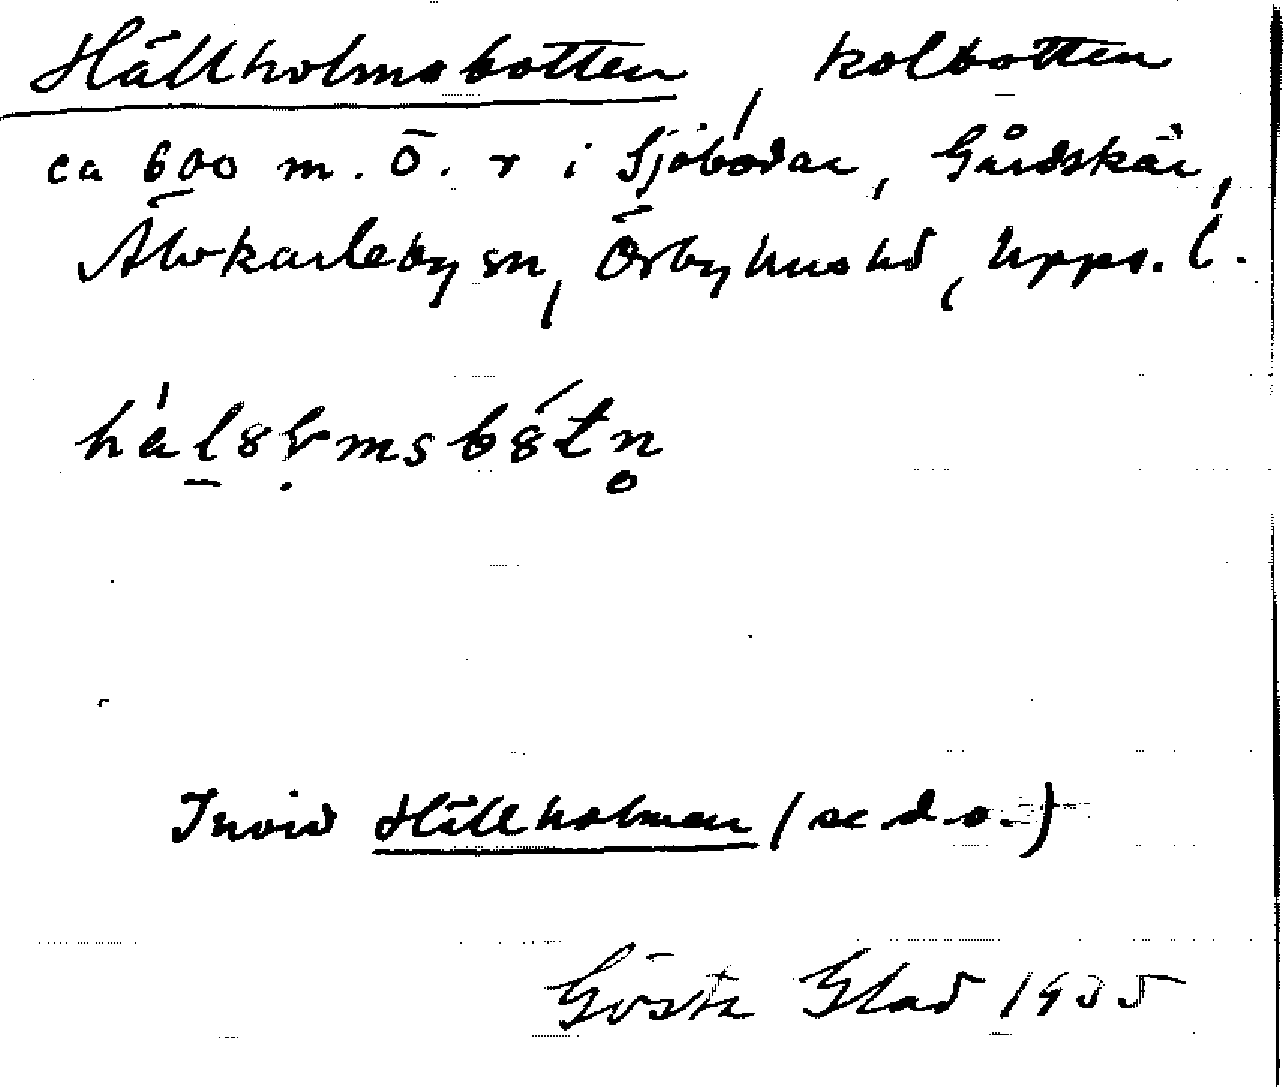 Hällholmsbotten, kolbotten
ca 600 m. Ö. r i Sjöbodar, Gårdskär,
Älvkarleby sn, Örbyhus hd, Upps. l.
Invid Hällholmen (se d.o.)
Gösta Glad 1935